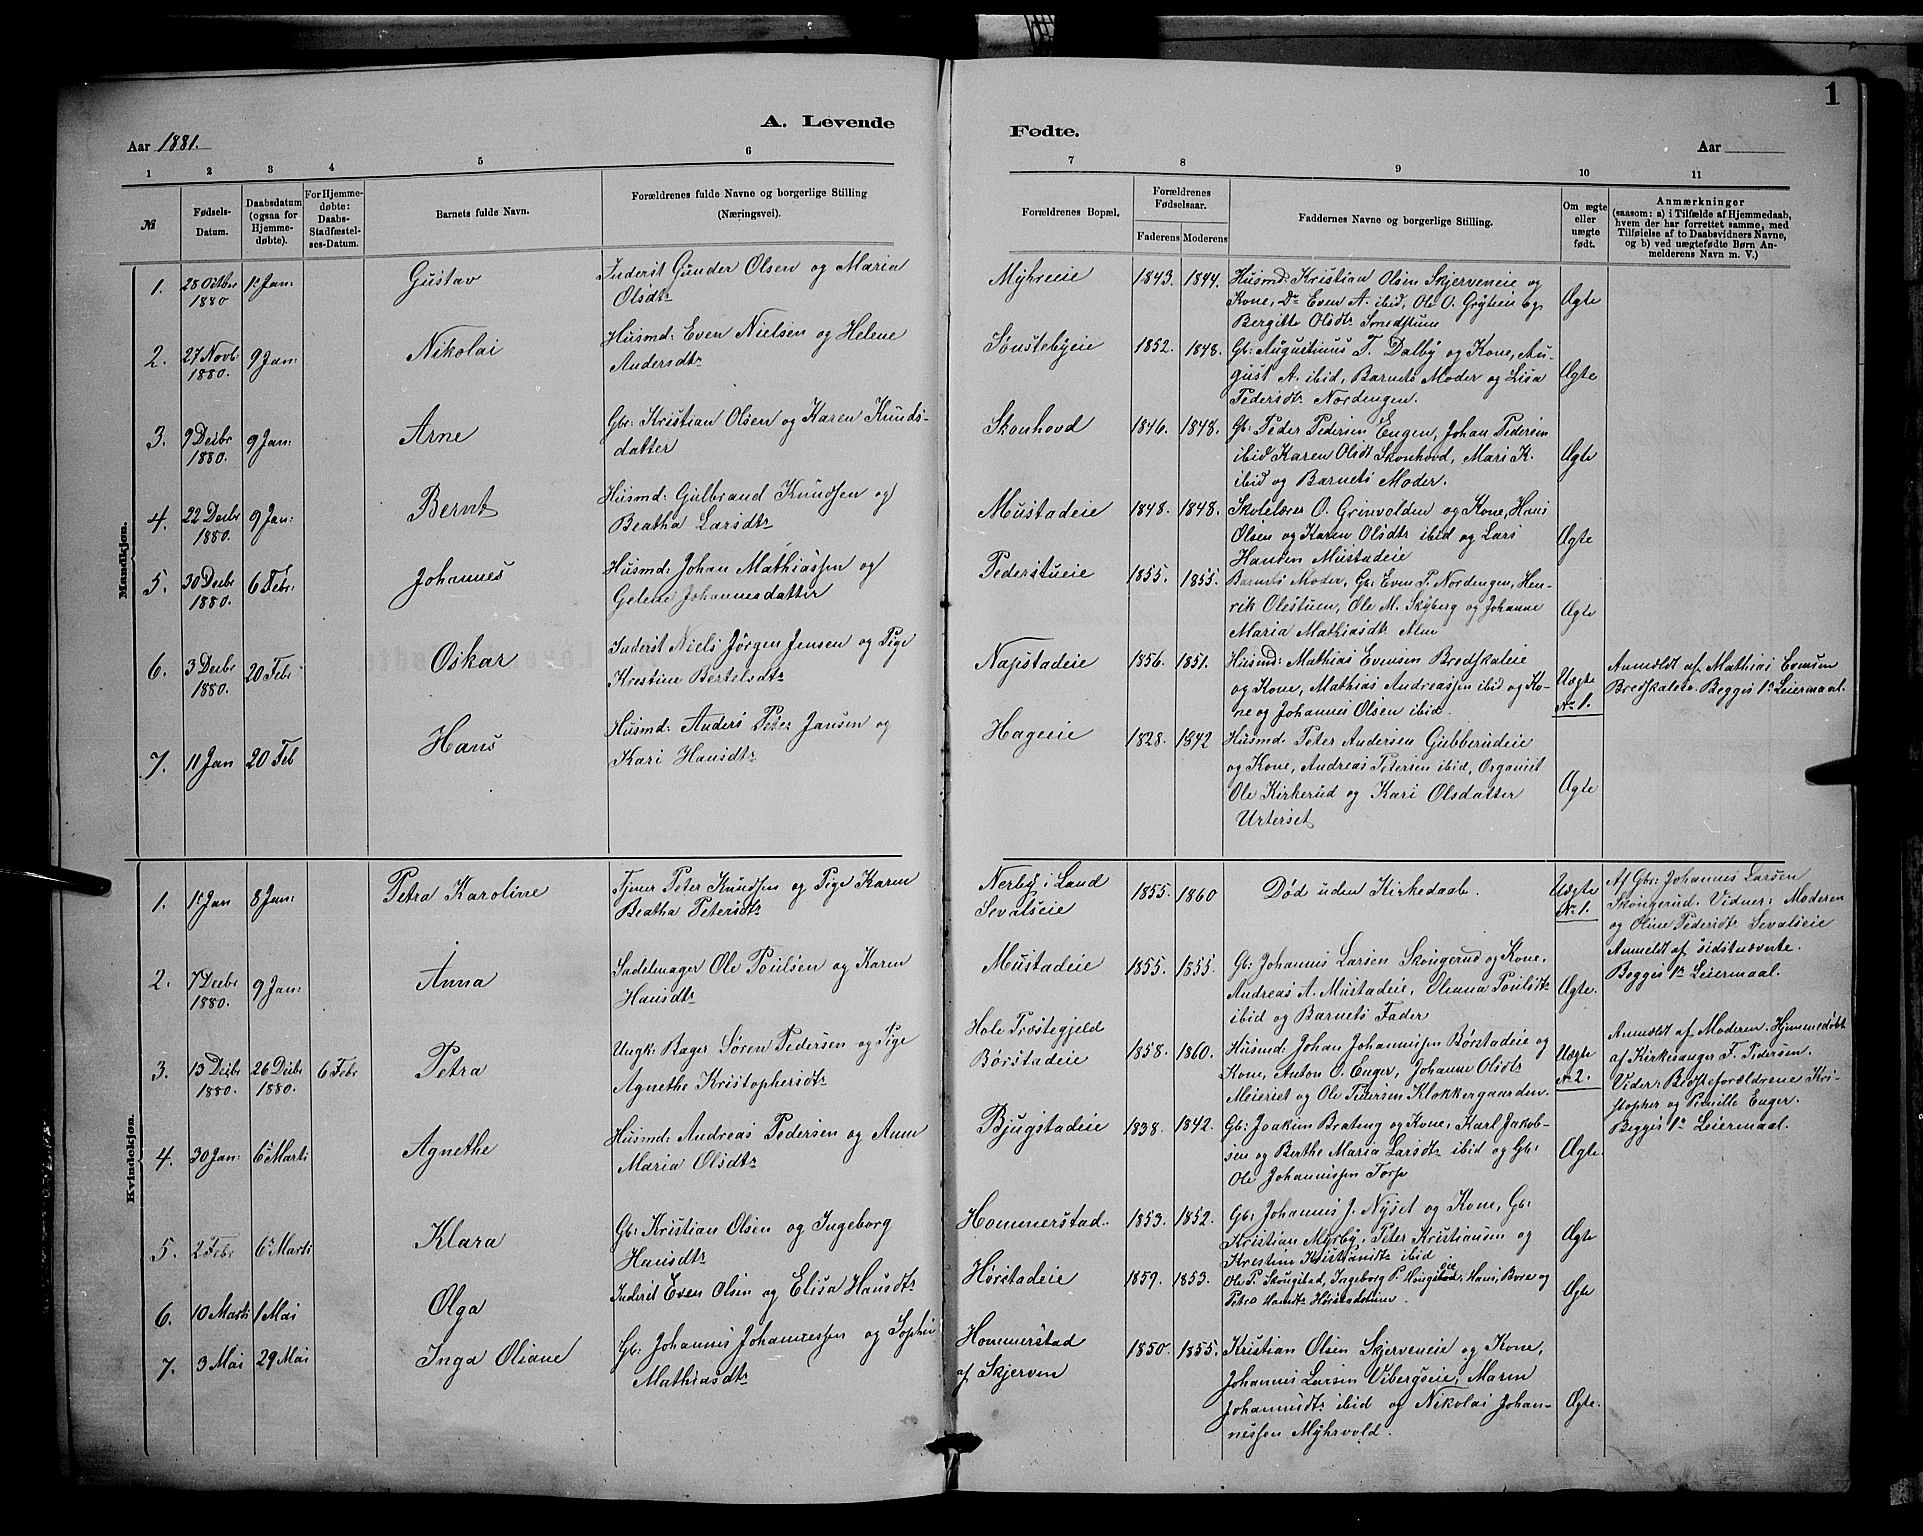 1
A. Levende
Fødte.
Aar 1881.
Aar
1 2 3 4 5 6
7 8 9 10 11
№
Fødsels-Datum.
Daabsdatum (ogsaa for Hjemmedøbte).
For Hjemmedøbte: Daabs-Stadfæstelses-Datum.
Barnets fulde Navn.
Forældrenes fulde Navne og borgerlige Stilling (Næringsvei).
Forældrenes Bopæl.
Forældrenes Fødselsaar.
Faderens Moderens
Faddernes Navne og borgerlige Stilling.
Om ægte eller uægte født.
Anmærkninger
(saasom: a) i Tilfælde af Hjemmedaab,
hvem der har forrettet samme, med
Tilføielse af to Daabsvidners Navne,
og b) ved uægtefødte Børn Anmelderens Navn m. V.)
Mandkjøn.
1. 28 Octbr 1880 1 Jan: Gustav
Inderst Gunder Olsen og Maria
Olsdtr
Myhreeie 1843. 1844.
Husmd: Kristian Olsen Skjerveneie og
Kone, Dr Even A. ibid, Ole O. Grybeie og
Bergitte Olsdtr Smedstuen
Ægte
2. 27 Novb 1880. 9 Jan: Nikolai
Husmd: Even Nielsen og Helene
Andersdtr
Sønstebyeie 1852. 1848.
Gb: Augustinus T. Dalby og Kone, Au-
gust A. ibid, Barnets Moder og Lisa
Pedersdtr Nordengen.
Ægte
3. 9 Decbr 1880. 9 Jan: Arne
Gbr: Kristian Olsen og Karen Knuds-
datter
Skonhovd 1846. 1848.
Gb: Peder Pedersen Engen, Johan Pedersen
ibid Karen Olsdt Skonhovd, Mari K.
ibid og Barnets Moder.
Ægte
4. 22 Decbr 1880. 9 Jan: Bernt
Husmd: Gulbrand Knudsen og
Beatha Larsdtr
Mustadeie 1848. 1848.
Skolelærer O. Grinvolden og Kone, Hans
Olsen og Karen Olsdtr ibid og Lars
Hansen Mustadeie
Ægte
5. 30 Decbr 1880. 6 Febr: Johannes
Husmd: Johan Mathiassen og
Gelene Johannesdatter
Pederstueie 1855. 1855.
Barnets Moder, Gb: Even P. Nordengen, Hen-
rik Olestuen, Ole M. Skyberg og Johanne
Maria Mathiasdtr Alm
Ægte
6. 3 Decbr 1880. 20 Febr Oskar
Inderst Niels Jørgen Jensen og Pige
Krestine Bertelsdtr
Napstadeie 1856. 1851.
Husmd: Mathias Evensen Bredskaleie
og Kone, Mathias Andreassen ibid og Ko-
ne og Johannes Olsen ibid.
Uægte Nr 1.
Anmeldt af Mathias Evensen
Bredskaleie. Begges 1ste Leiermaal.
7. 11 Jan 20 Feb Hans
Husmd: Anders Peter Jansen og
Kari Hansdtr
Hageeie 1828. 1842
Husmd. Peter Andersen Gubberudeie
og Kone, Andreas Petersen ibid, Organist
Ole Kirkerud og Kari Olsdatter
Urterset
Ægte
Kvindekjøn.
1. 1 Jan 8 Jan: Petra Karoline
Tjener Peter Knudsen og Pige Karen
Beatha Petersdtr
Nerby i Land
Sevalseie 1855. 1860
Død uden Kirkedaab.
Uægte Nr 1.
Af Gbr: Johannes Larsen
Skongerud. Vidner: Moderen
og Oline Pedersdtr Sevalseie
Anmeldt af sidstnævnte.
Begges 1ste Leiermaal.
2. 7 Decbr 1880. 9 Jan: Anna
Sadelmager Ole Poulsen og Karen
Hansdtr
Mustadeie 1855. 1855.
Gb: Johannes Larsen Skongerud og Kone,
Andreas A. Mustadeie, Oleana Poulsdtr
ibid og Barnets Fader
Ægte.
3. 13 Decbr 1880. 26 Decbr 1880. 6 Febr Petra
Ungk: Bager Søren Pedersen og Pige
Agnethe Kristophersdtr
Hole Præstegjeld
Børstadeie 1858. 1860.
Husmd: Johan Johannesen Børstadeie og
Kone, Anton O. Enger, Johanne Olsdtr
Meieriet og Ole Petersen Klokkergaarden.
Uægte Nr 2.
Anmeldt af Moderen. Hjemmedøbt
af Kirkesanger F. Pedersen.
Vider: Bedsteforældrene Kri-
stopher og Pernille Enger.
Begges 1ste Leiermaal.
4. 30 Jan: 6 Marts Agnethe
Husmd: Andreas Pedersen og Anne
Maria Olsdtr
Bjugstadeie 1838. 1842.
Gb: Joakim Brateng og Kone, Karl Jakob-
sen og Berthe Maria Larsdtr ibid og Gb:
Ole Johannesen Torp
Ægte.
5. 2 Febr 6 Marts Klara
Gb: Kristian Olsen og Ingeborg
Hansdtr
Hommerstad. 1853. 1852.
Gb: Johannes J. Nyset og Kone, Gb:
Kristian Myrby, Peter Kristiansen og
Krestine Kristiansdtr ibid
Ægte
6. 10 Marts 1 Mai Olga
Inderst Even Olsen og Elisa Hansdtr
Hørstadeie 1859. 1853.
Ole P. Skougstad, Ingeborg P. Haugstadeie, Hans Bore og
Petra Hansdtr Hørstadstuen.
Ægte
7. 3 Mai 29 Mai Inga Oliane
Gb: Johannes Johannessen og Sophie
Mathiasdtr
Hommerstad
af Skjerven 1850. 1855.
Kristian Olsen Skjerveneie og Kone,
Johannes Larsen Vibergseie, Maren
Johannesdtr ibid og Nikolai Johan-
nessen Myhrvold.
Ægte.